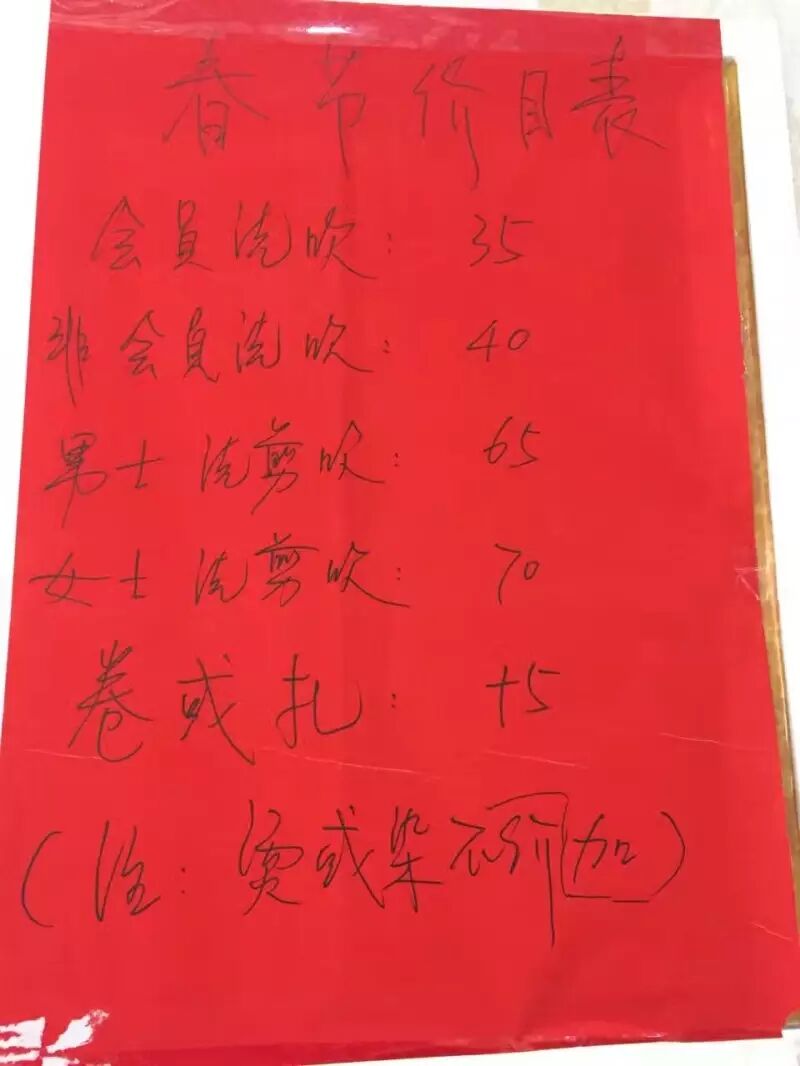 春节价目表
会员洗吹：35
非会员洗吹：40
男士洗剪吹：65
女士洗剪吹：70
卷或扎：+5
（注：烫或染不价加）